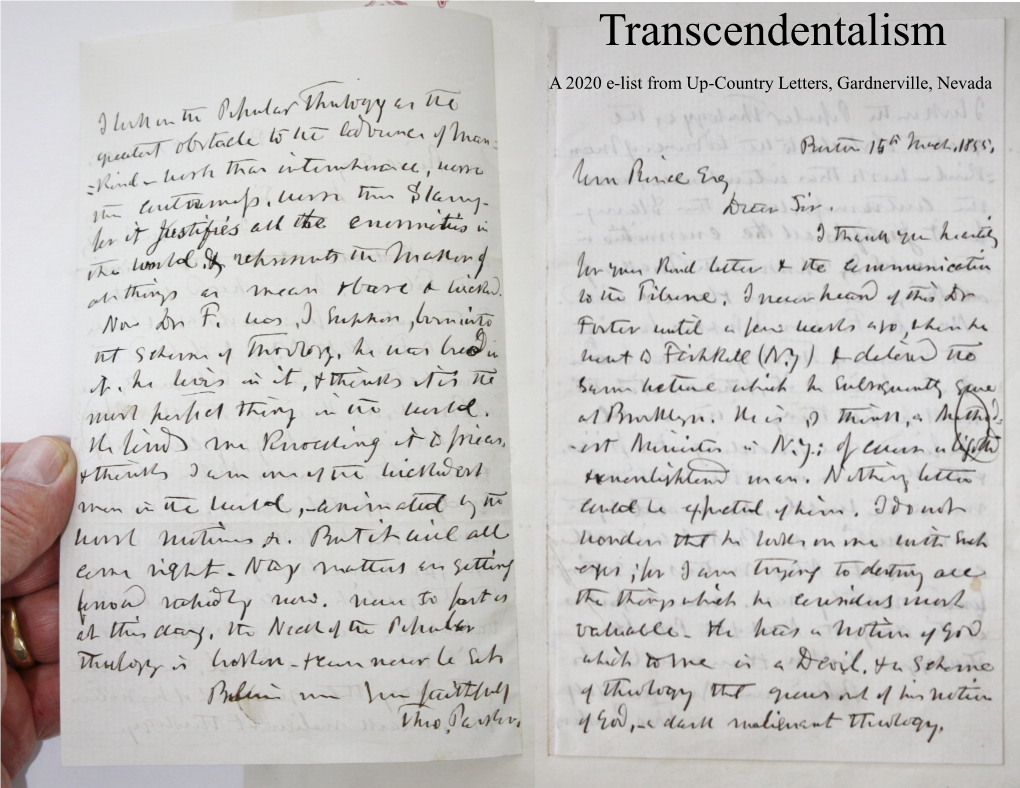 Transcendentalism
A 2020 e-list from Up-Country Letters, Gardnerville, Nevada
Boston 15th March, 1855,
Wm Esq
Dear Sir.
I thank you heartily
for your kind letter & the communication
to the Tribune. I never heard of this Dr
Forter until a few weeks ago, when he
went to Fishkill (N.Y) & delivered the
same lecture which he subsequently gave
at Brooklyn. He is, I think, a Method-
-ist Minister in N.Y.; of course a
& unenlightened man. Nothing better
could be expected of him. I do not
wonder that he looks on me with such
eyes; for I am trying to destroy all
the things which he considers most
valuable. He has a notion of God
which to me is a Devil, & a scheme
of theology that grows out of his notion
of God, a dark malignant theology.
I look on the Popular Theology as the
greatest obstacle to the advance of Man-
=kind – worse than intemperance, worse
than , worse than Slavery-
for it justifies all the enormities in
the world, & represents the Maker of
all things as mean & base & wicked.
Now Dr F. was, I suppose, born into
that scheme of theology, he was bred in
it, he lives in it, & thinks it is the
most perfect thing in the world.
He finds me knocking it to pieces,
& thinks I am one of the wickedest
men in the world, – animated by the
worst motives &c. But it will all
come right – Nay matters are getting
forward rapidly now. near to
at this day, the Neck of the Popular
theology is broken – & can never be set.
Believe me Yours faithfully
Theo. Parker.